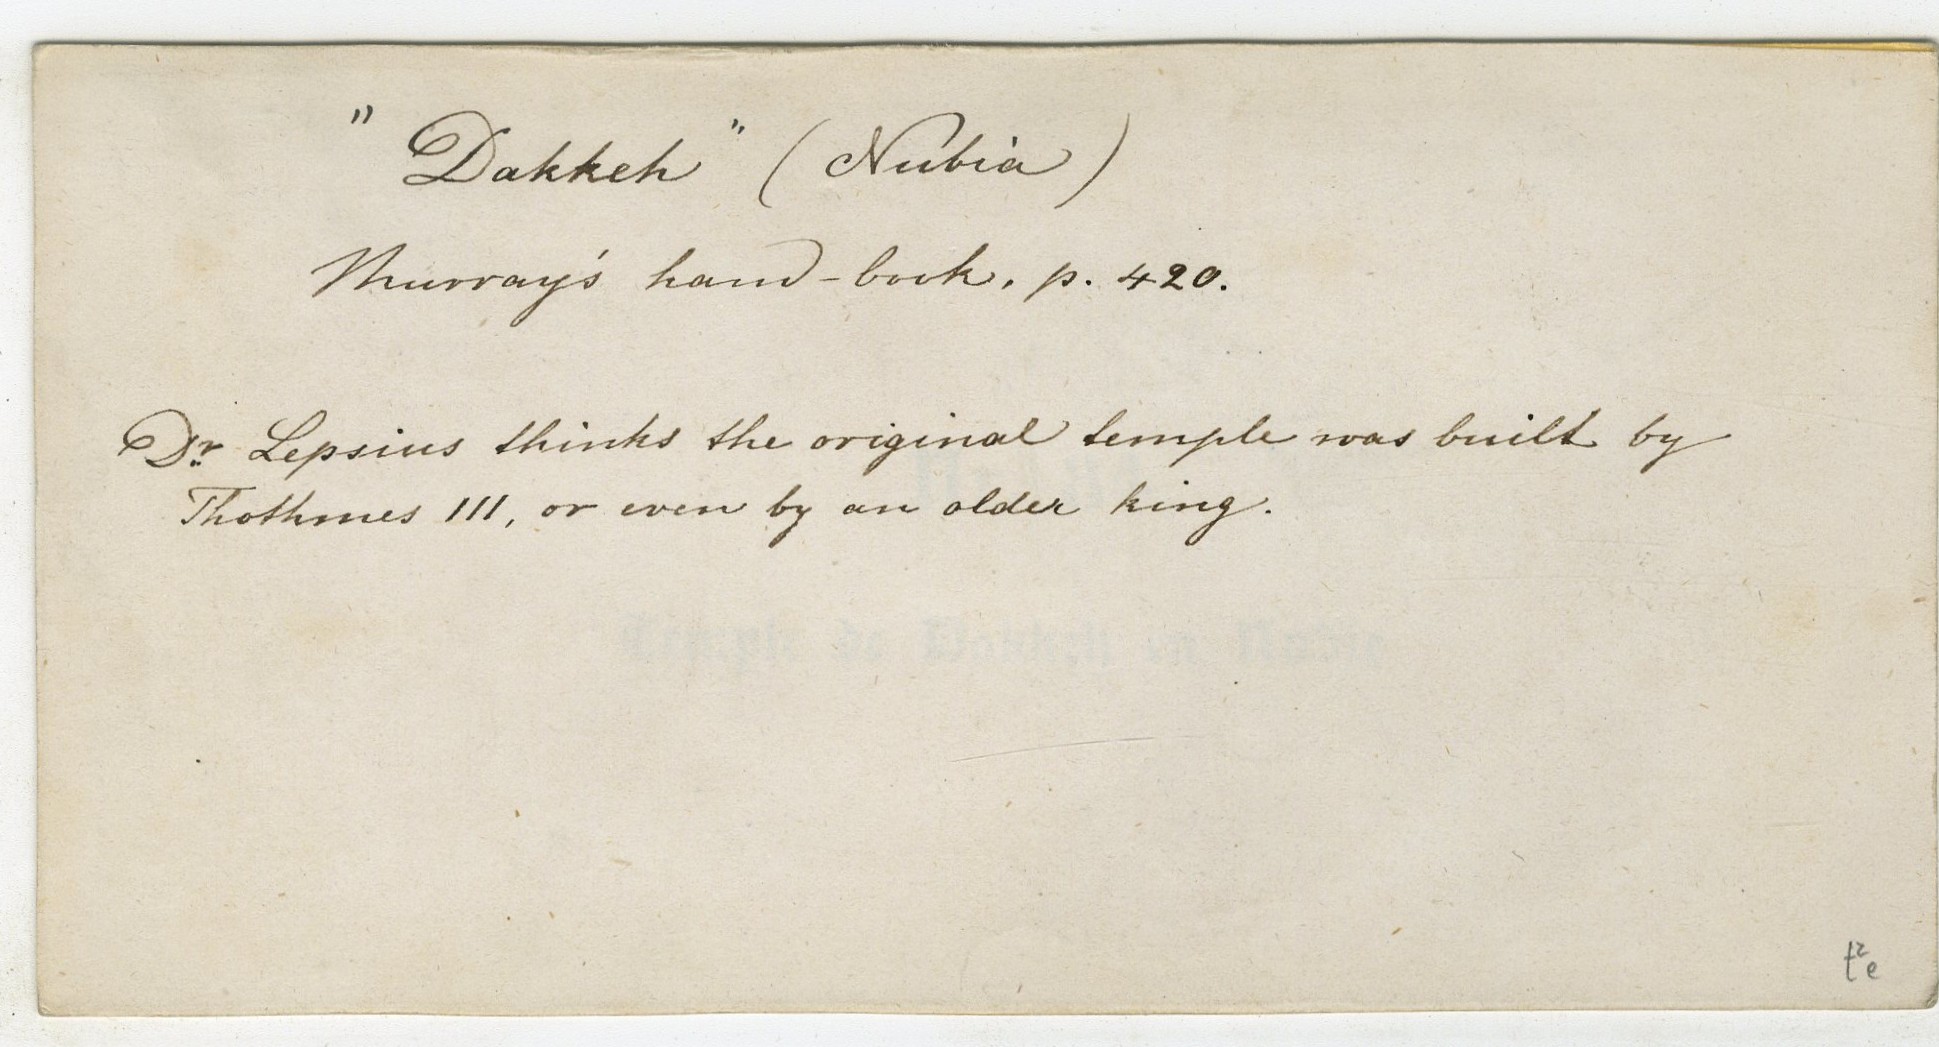 "Dakkeh" (Nubia)
Murray's hand-book. p. 420.
Dr Lepsius thinks the original temple was built by
Thothmes III, or even by an older king.
Temple de Dakkeh en Nubie